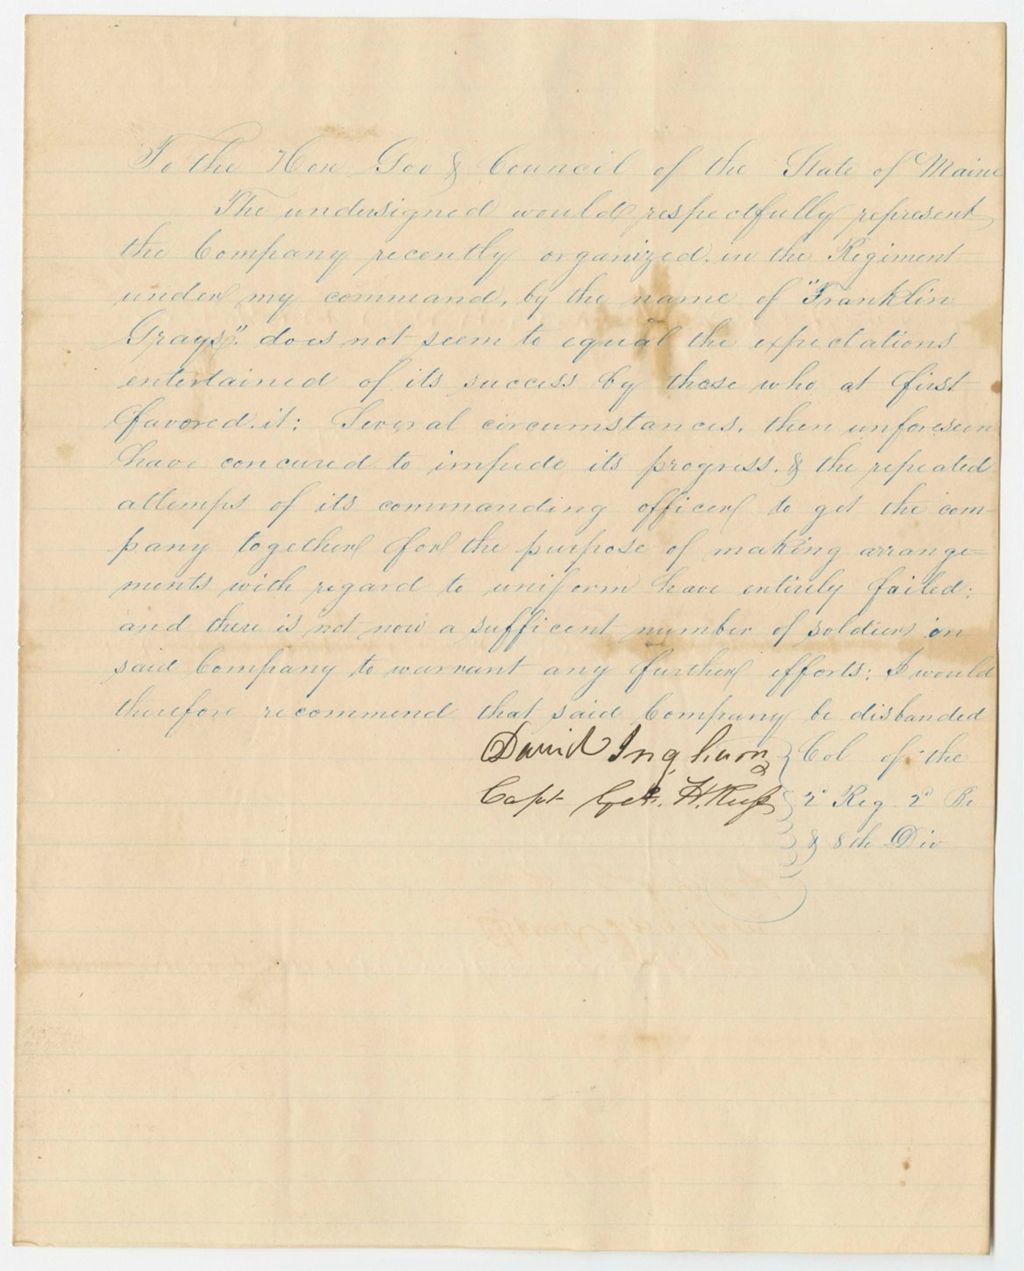 To the Hon Gov & Council of the State of Maine
The undersigned would respectfully represent
the Company recently organized. in the Regiment
under my command, by the name of "Franklin
Grays". does not seem to equal the expectations
entertained of its success by those who at first
favored. it; Several circumstances, then unforeseen
have concured to impede its progress. & the repeated
attemps of its commanding officer to get the com-
pany together for the purpose of making arrange=
ments with regard to uniform have entirely failed;
and there is not now a sufficent number of soldiers in
said Company to warrant any further efforts; I would
therefore recommend that said Company be disbanded
David Ingham Col of the
Capt Geo. H. Russ 2d Reg 2d Br
& 8th Div